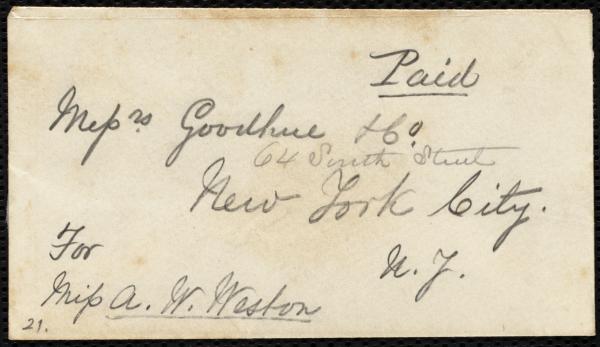 Paid
Messrs Goodhue & Co
64 South Street
New York City.
N. Y.
For
Miss A. W. Weston
21.